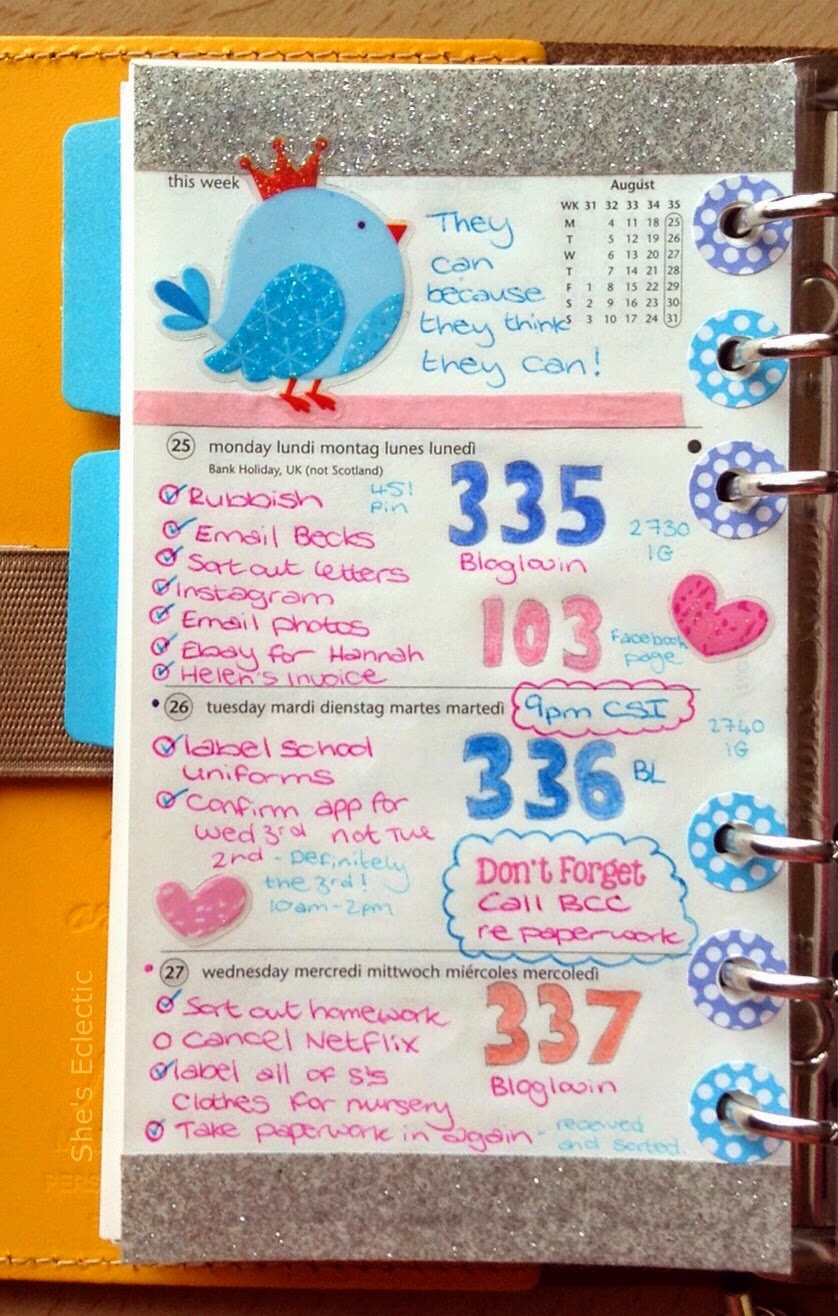 this week
They
can
because
they think
they can!
August
WK 31 32 33 34 35
M 4 11 18 25
T 5 12 19 26
W 6 13 20 27
T 7 14 21 28
F 1 8 15 22 29
S 2 9 16 23 30
S 3 10 17 24 31
25 monday lundi montag lunes lunedì
Bank Holiday, UK (not Scotland)
Rubbish
451
Pin
335
Bloglovin
2730
IG
Email Becks
Sort out letters
Instagram
Email photos
Ebay for Hannah
Helen's Invoice
103
Facebook
page
26 tuesday mardi dienstag martes martedì
9pm CSI
2740
IG
label school
uniforms
336
BL
Confirm app for
Wed 3rd not Tue
2nd - Definitely
the 3rd!
10am-2pm
Don't Forget
Call BCC
re paperwork
27 wednesday mercredi mittwoch miércoles mercoledì
Sort out homework
Cancel Netflix
label all of S's
Clothes for nursery
Take paperwork in again - received
and sorted
337
Bloglovin
She's Eclectic